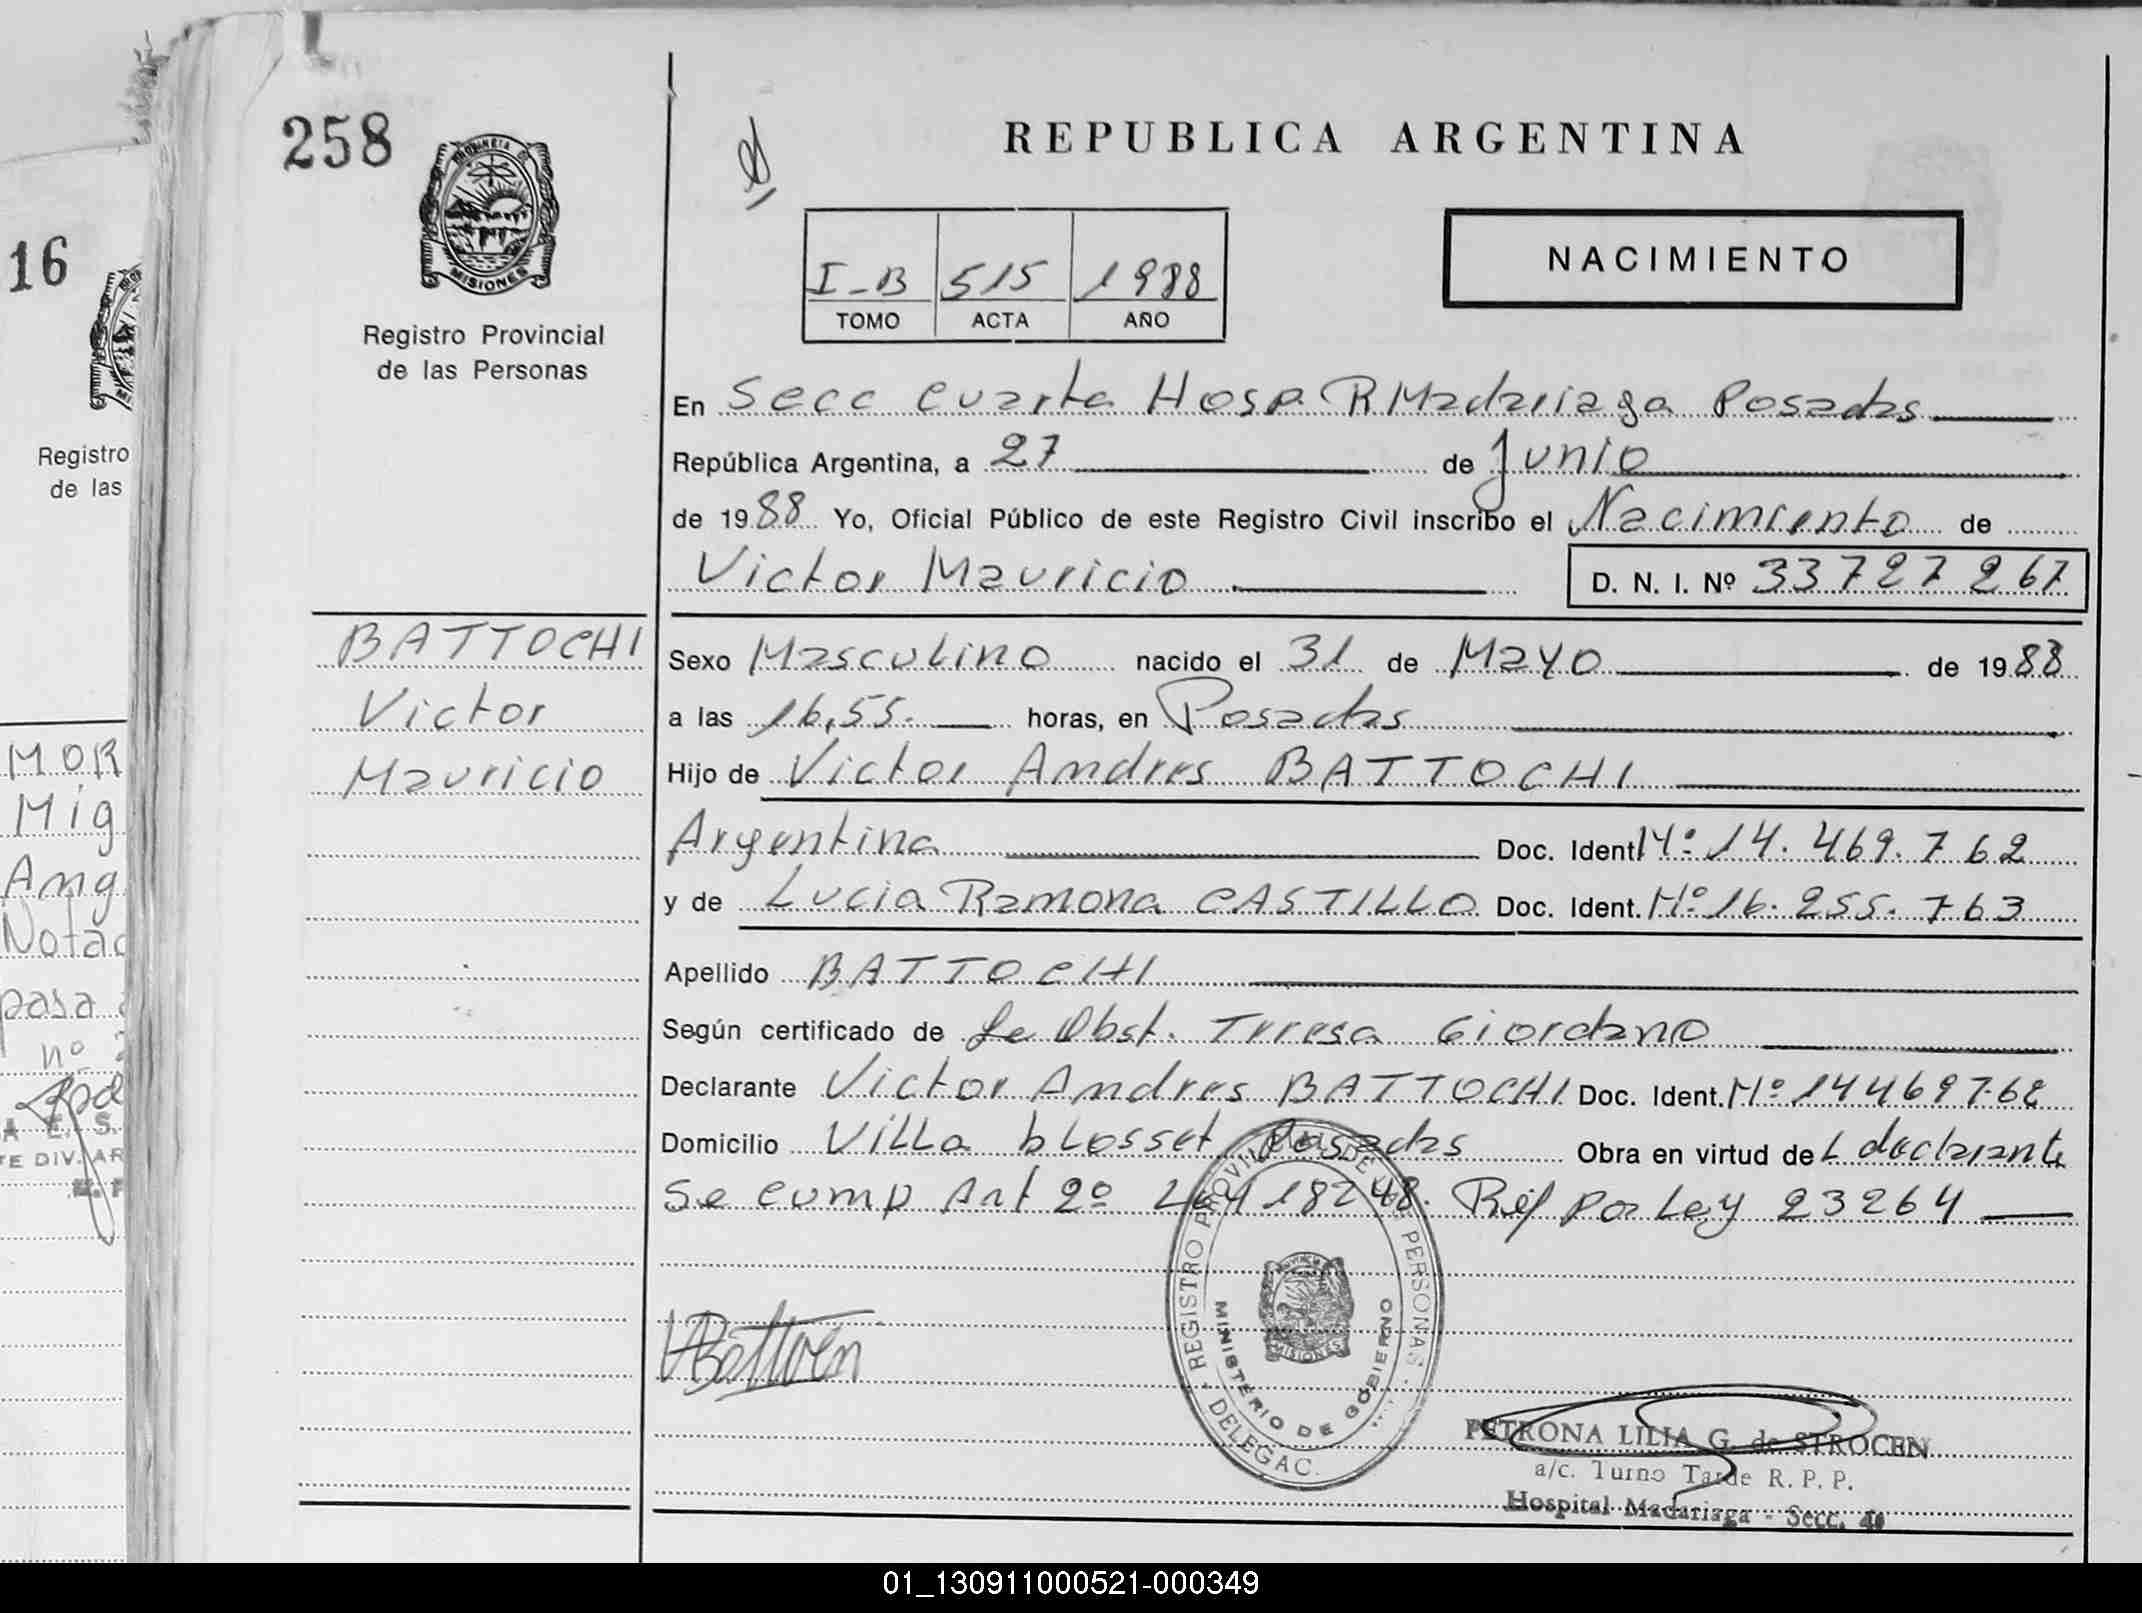 258
PROVINCIA DE
MISIONES
Registro Provincial
de las Personas
REPUBLICA ARGENTINA
I-B 515 1988
TOMO ACTA AÑO
NACIMIENTO
En Secc Cuarta Hosp R Madariaga Posadas
República Argentina, a 27 de Junio
de 1988 Yo, Oficial Público de este Registro Civil inscribo el Nacimiento de
Victor Mauricio D. N. I. Nº 33727267
BATTOCHI
Victor
Mauricio
Sexo Masculino nacido el 31 de Mayo de 1988
a las 16,55. horas, en Posadas
Hijo de Victor Andres BATTOCHI
Argentina Doc. Ident. Mº 14.469.762
y de Lucia Ramona CASTILLO Doc. Ident. Mº 16.255.763
Apellido BATTOCHI
Según certificado de La Obst. Teresa Giordano
Declarante Victor Andres BATTOCHI Doc. Ident. Mº 14469762
Domicilio Villa blosset Posadas Obra en virtud de L declarante
Se cump Art 2º Ley 18248. Ref por Ley 23264
REGISTRO PROVINCIAL DE LAS PERSONAS
MINISTERIO DE GOBIERNO
MISIONES
DELEGAC.
PETRONA LILIA G. de STROCEN
a/c. Turno Tarde R. P. P.
Hospital Madariaga - Secc. 4ª
16
Registro
de las
MOR
Mig
Ang
Nota
pasa
nº
A E. S.
TE DIV. AR
01_130911000521-000349